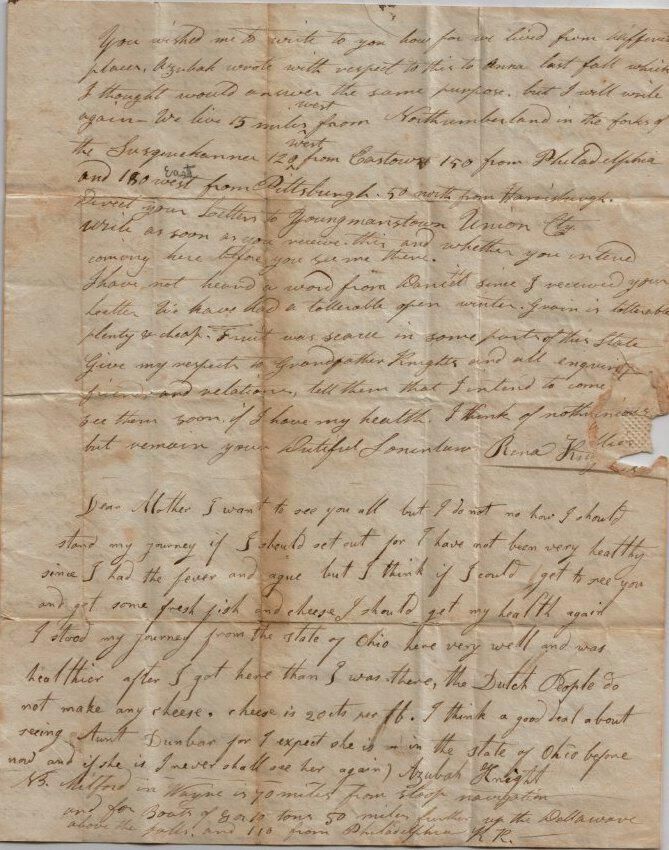 You wished me to write to you how far we lived from different
places, Azubah wrote with respect to this to Anna last fall which
I thought would answer the same purpose. but I will write
again - We live 15 miles west from Northumberland in the forks of
the Susquehanner 120 west from Eastown 150 from Philadelphia
and 180 East from Pittsburgh. 50 north from Harrisburgh.
Direct your Letters to Youngmanstown Union Cty
Write as soon as you receive this, and whether you intend
coming here before you see me there.
I have not heard a word from Daniel since I received your
Letter We have had a tollerable open winter. Grain is tollerable
plenty & cheap. Fruit was scarce in some parts of this State
Give my respects to Grandfather Knights and all enquiring
friends and relations, tell them that I intend to come
see them soon if I have my health. I think of nothing
but remain your Dutiful Soninlaw Rena
Dear Mother I want to see you all but I do not no how I should
stand my journey if I should set out for I have not been very healthy
since I had the fever and ague but I think if I could get to see you
and get some fresh fish and cheese I should get my health again
I stood my journey from the state of Ohio here very well and was
healthier after I got here than I was there, the Dutch People do
not make any cheese. cheese is 20 cts per lb. I think a good deal about
seeing Aunt Dunbar for I expect she is in the state of Ohio before
now and if she is I never shall see her again) Azubah Knight
NB. Milford in Wayne is 70 miles from sloop navigation
and for Boats of 8 or 10 tons 50 miles further up the Dallawave
above the falls. and 110 from Philadelphia R.K.